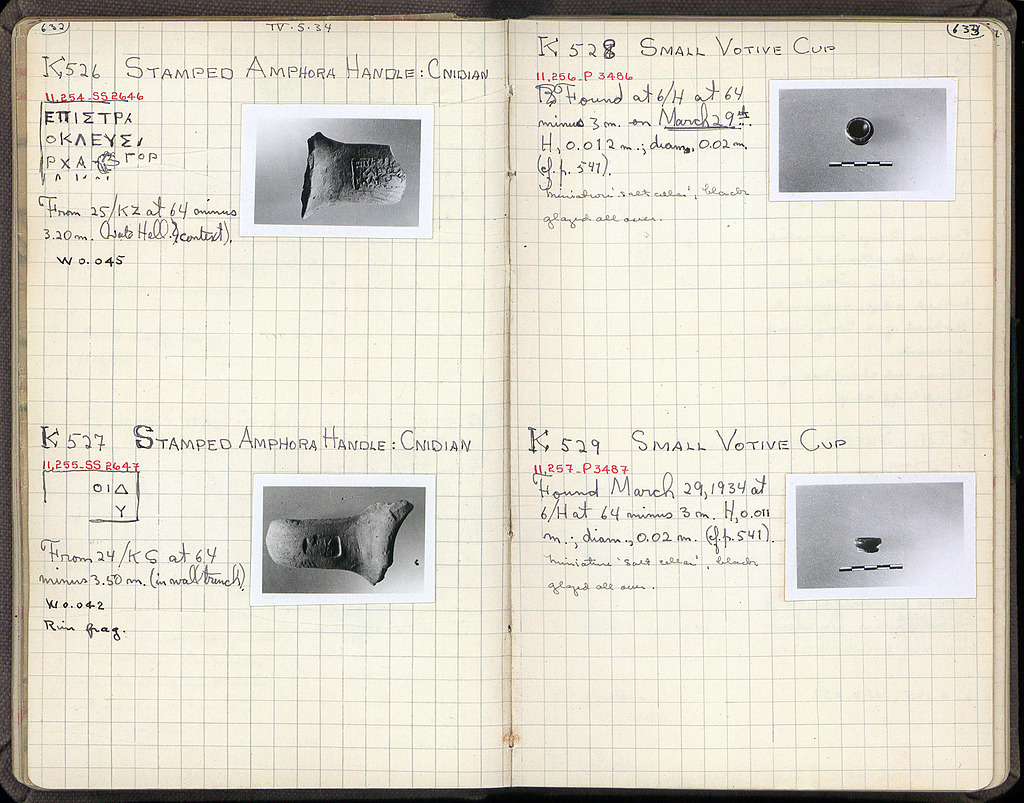 632
TV·5·34
K526 STAMPED AMPHORA HANDLE: CNIDIAN
11,254-SS 2646
ΕΠΙΣΤΡΑ
ΟΚΛΕΥΣ
ΡΧΑ ΓΟΡ
From 25/ΚΖ at 64 minus
3.20 m. (Late Hell.? context).
W 0.045
K527 STAMPED AMPHORA HANDLE: CNIDIAN
11,255-SS 2647
ΟΙΔ
Υ
From 24/ΚS at 64
minus 3.50 m. (in wall trench).
W 0.042
Rim frag.
633
K 528 SMALL VOTIVE CUP
11,256-P 3486
Found at 6/H at 64
minus 3 m. on March 29th.
H, 0.012 m.; diam., 0.02 m.
(cf. p. 541).
Miniature 'salt cellar', black
glazed all over.
K 529 SMALL VOTIVE CUP
11,257-P 3487
Found March 29, 1934 at
6/H at 64 minus 3 m. H, 0.011
m.; diam., 0.02 m. (cf. p. 541).
Miniature 'salt cellar', black
glazed all over.